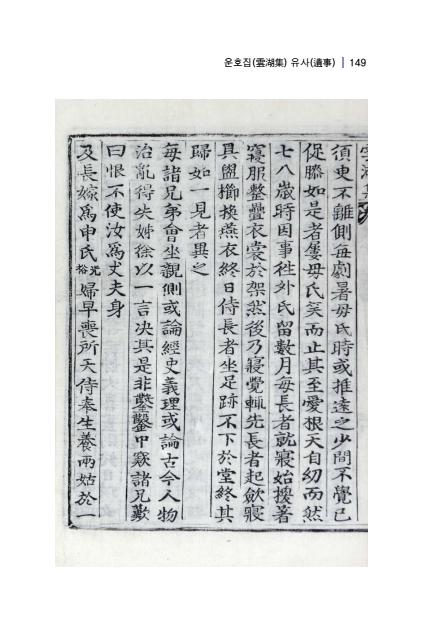 운호집(雲湖集) 유사(遺事) | 149
須臾不離側每劇暑母氏時或推遠之少間不覺已
促膝如是者屢母氏笑而止其至愛根天自幼而然
七八歲時因事往外氏留數月每長者就寢始援著
寢服整疊衣裳於架然後乃寢覺輒先長者起斂寢
具盥櫛換燕衣終日侍長者坐足跡不下於堂終其
歸如一見者異之
每諸兄弟會坐觀側或論經史義理或論古今人物
治亂得失姊徐以一言决其是非鑿鑿中窾諸兄歎
曰恨不使汝爲丈夫身
及長嫁爲申氏光裕婦早喪所天侍奉生養兩姑於一